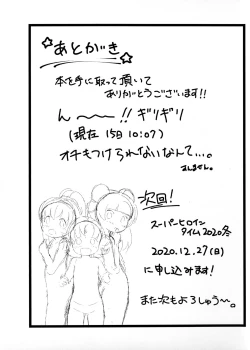 ☆あとがき☆
本を手に取って頂いて
ありがとうございます!!
ん〜〜!!ギリギリ
(現在 15日 10:07)
オチもつけられないなんて…。
すんません。
次回!
スーパーヒロイン
タイム2020冬
2020.12.27(日)
に申し込みます!
また次もよろしゅう〜。